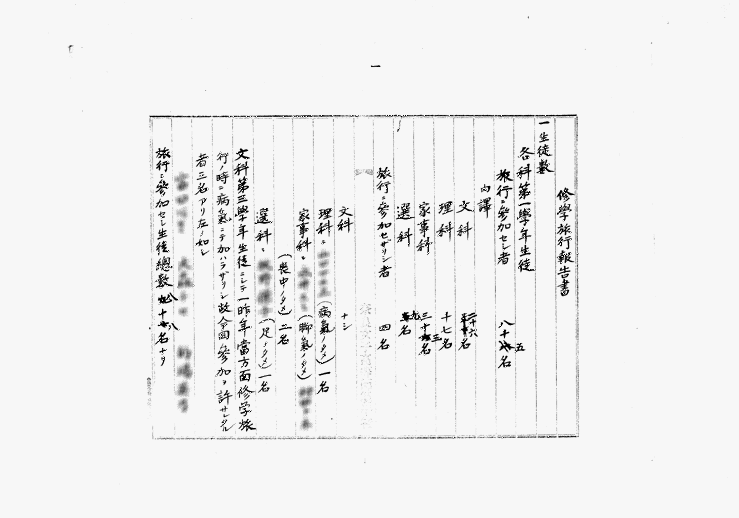 一
修學旅行報告書
一生徒數
各科第一學年生徒
旅行ニ參加セシ者 八十五名
內譯
文科 二十六名
理科 十七名
家事科 三十三名
選科 九名
旅行ニ參加セザリシ者 四名
文科 ナシ
理科ニ (病氣ノタメ) 一名
家事科ニ (脚氣ノタメ)
(喪中ノタメ) 二名
選科ニ (足ノタメ) 一名
文科第三學年生徒ニシテ一昨年當方面修學旅
行ノ時ニ病氣ニテ加ハラザリシ故今回參加ヲ許サレタル
者三名アリ左ノ如シ
旅行ニ參加セシ生徒總數 八十八名ナリ